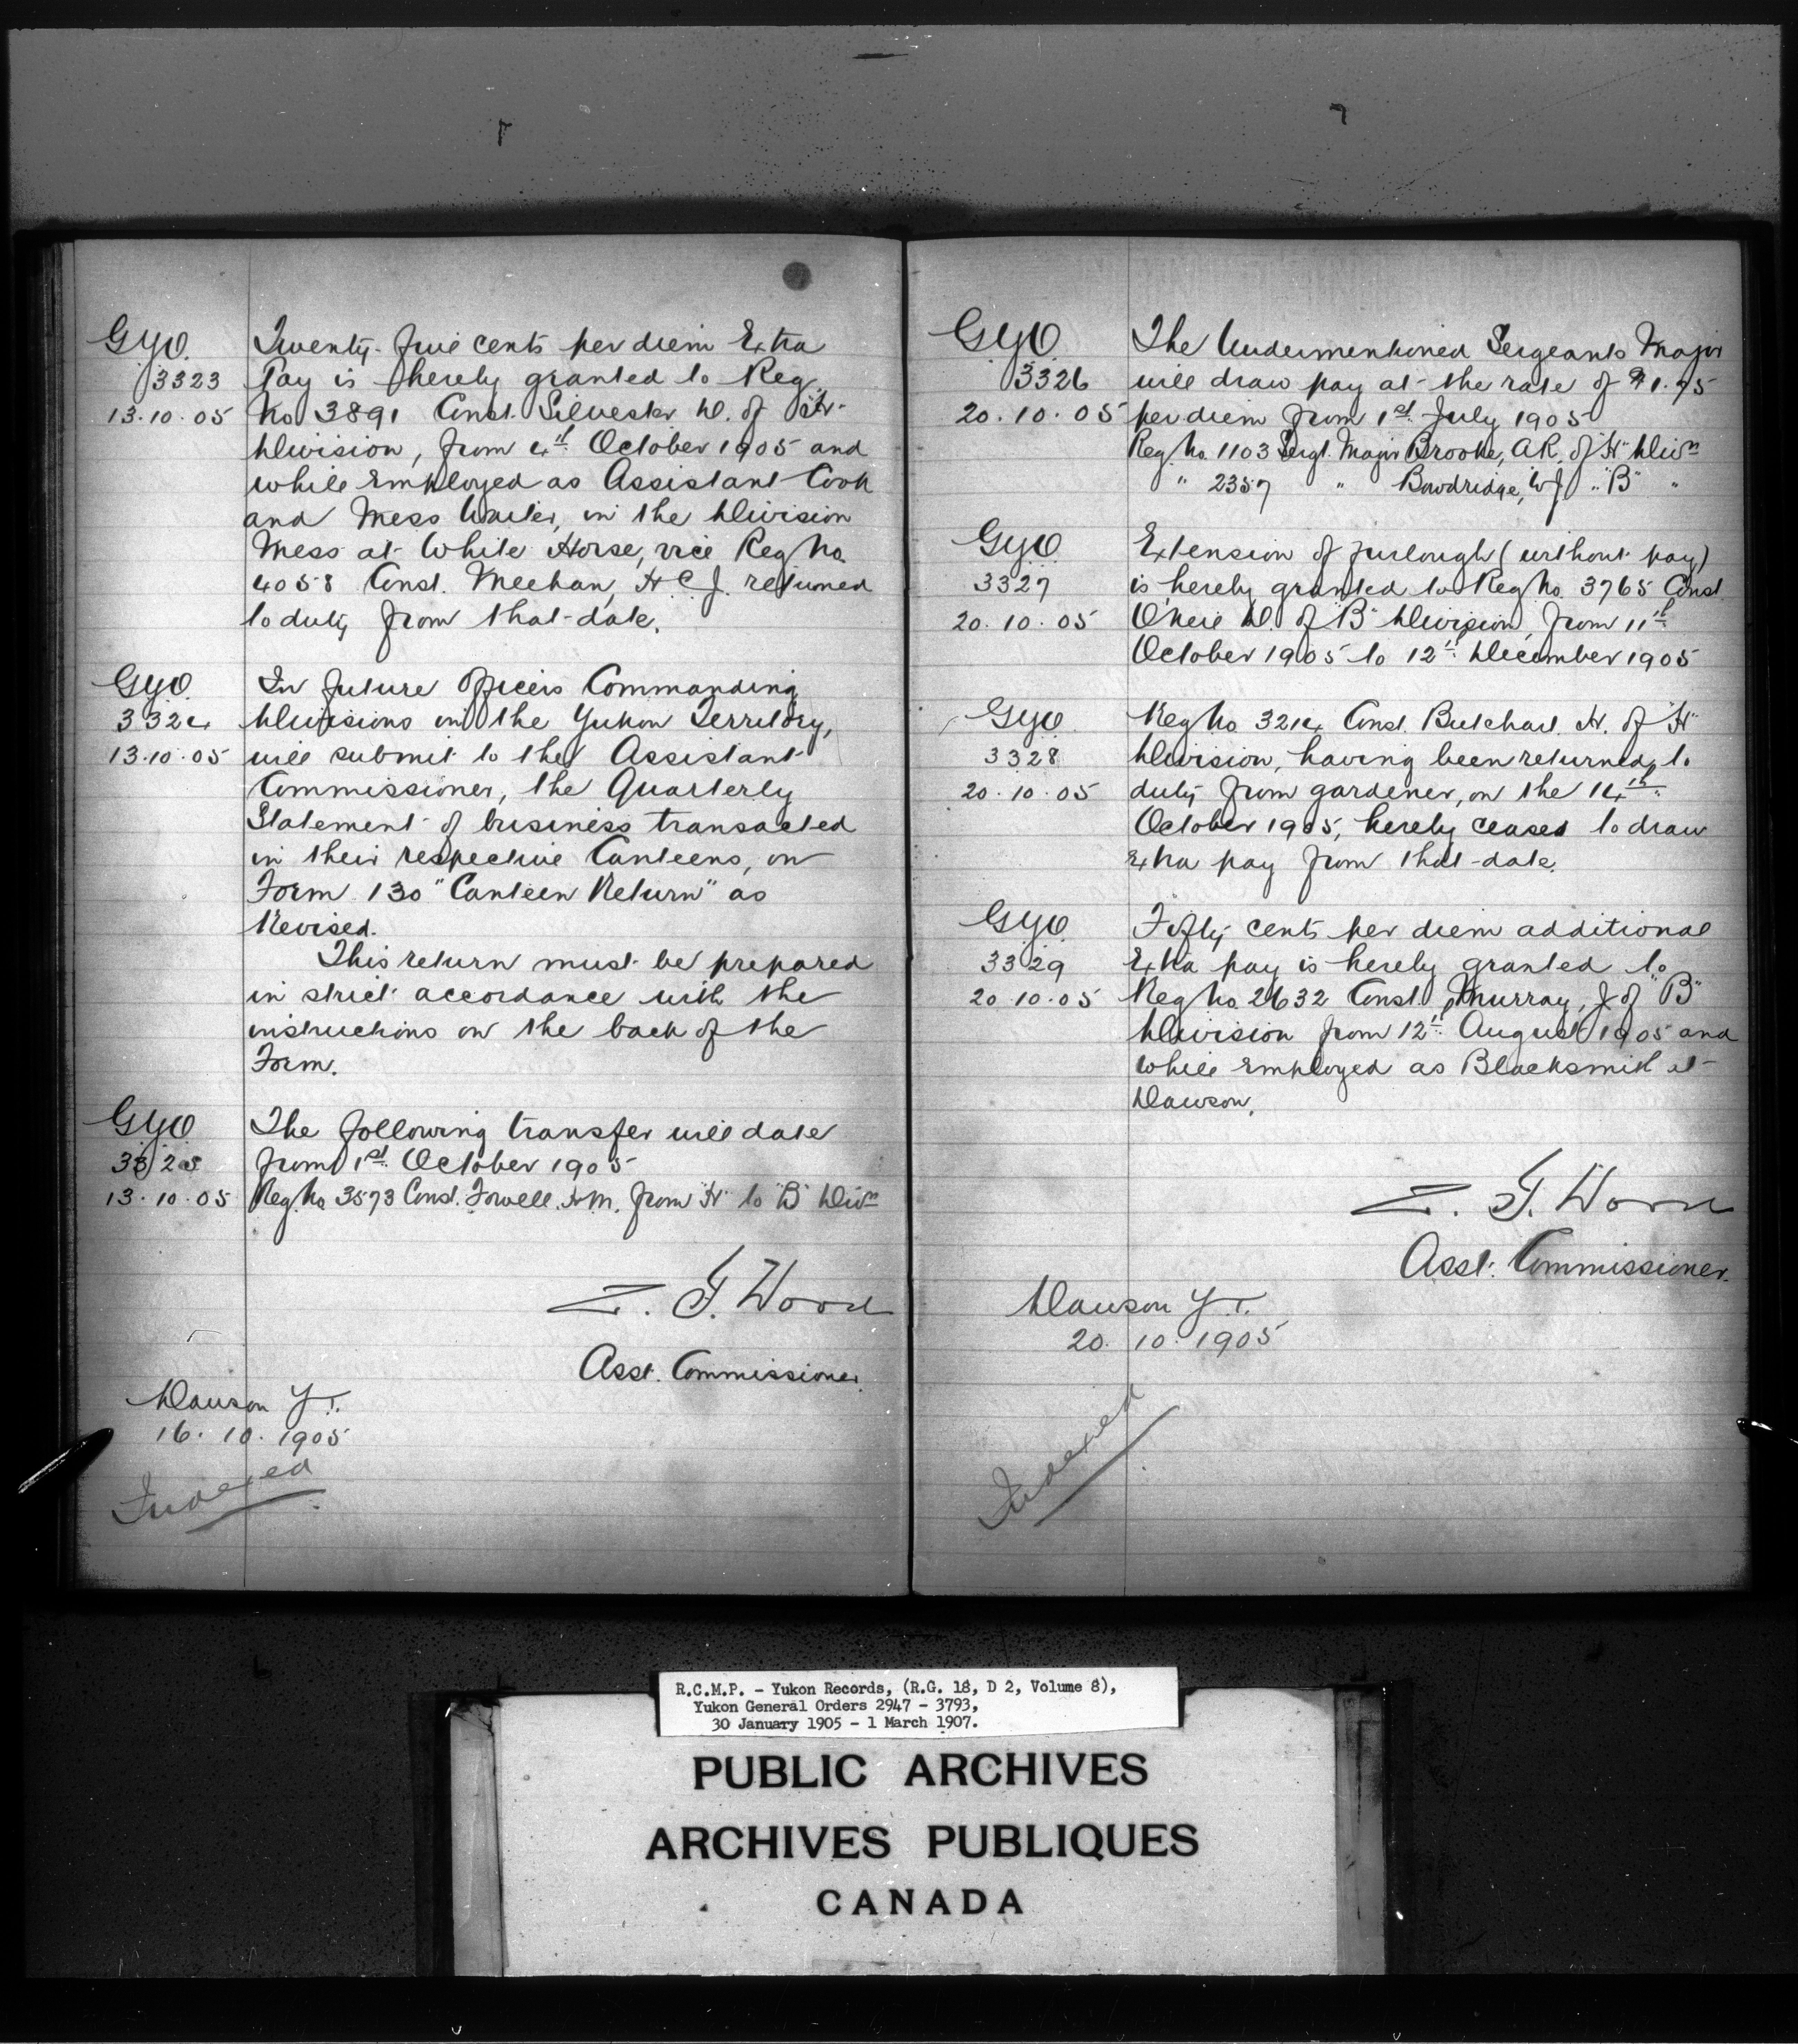 G.Y.O. Twenty-five cents per diem Extra
3323 Pay is hereby granted to Reg.
13.10.05 No 3891 Const. Silvester D. of "H"
Division, from 4th October 1905 and
while Employed as Assistant Cook
and Mess Waiter, in the Division
Mess at White Horse, vice Reg No.
4058 Const. Meehan, H.C.J. returned
to duty from that date.
G.Y.O. In future Officers Commanding
3324 Divisions in the Yukon Territory,
13.10.05 will submit to the Assistant
Commissioner, the Quarterly
Statement of business transacted
in their respective Canteens, on
Form 130 "Canteen Return" as
Revised.
This return must be prepared
in strict accordance with the
instructions on the back of the
Form.
G.Y.O. The following transfer will date
3325 from 1st October 1905
13.10.05 Reg. No. 3573 Const. Fowell H.M. from "H" to "B" Divn
Z. T. Wood
Asst. Commissioner.
Dawson Y.T.
16.10.1905
Indexed
G.Y.O. The Undermentioned Sergeants Major
3326 will draw pay at the rate of $1.75
20.10.05 per diem from 1st July 1905
Reg. No. 1103 Sergt. Major Brooke, A.R. of "H" Divn
" 2357 " Bowdridge, W.J. " "B" "
G.Y.O. Extension of furlough (without pay)
3327 is hereby granted to Reg No. 3765 Const.
20.10.05 D. of "B" Division, from 11th
October 1905 to 12th December 1905
G.Y.O. Reg No. 3214 Const. Butchart H. of "H"
3328 Division, having been returned to
20.10.05 duty from gardener, on the 14th
October 1905, hereby ceases to draw
Extra pay from that date.
G.Y.O. Fifty cents per diem additional
3329 Extra pay is hereby granted to
20.10.05 Reg No. 2632 Const. Murray, J. of "B"
Division from 12th August 1905 and
while Employed as Blacksmith at
Dawson.
Z. T. Wood
Asst. Commissioner.
Dawson Y.T.
20.10.1905
Indexed
R.C.M.P. - Yukon Records, (R.G. 18, D 2, Volume 8),
Yukon General Orders 2947 - 3793,
30 January 1905 - 1 March 1907.
PUBLIC ARCHIVES
ARCHIVES PUBLIQUES
CANADA